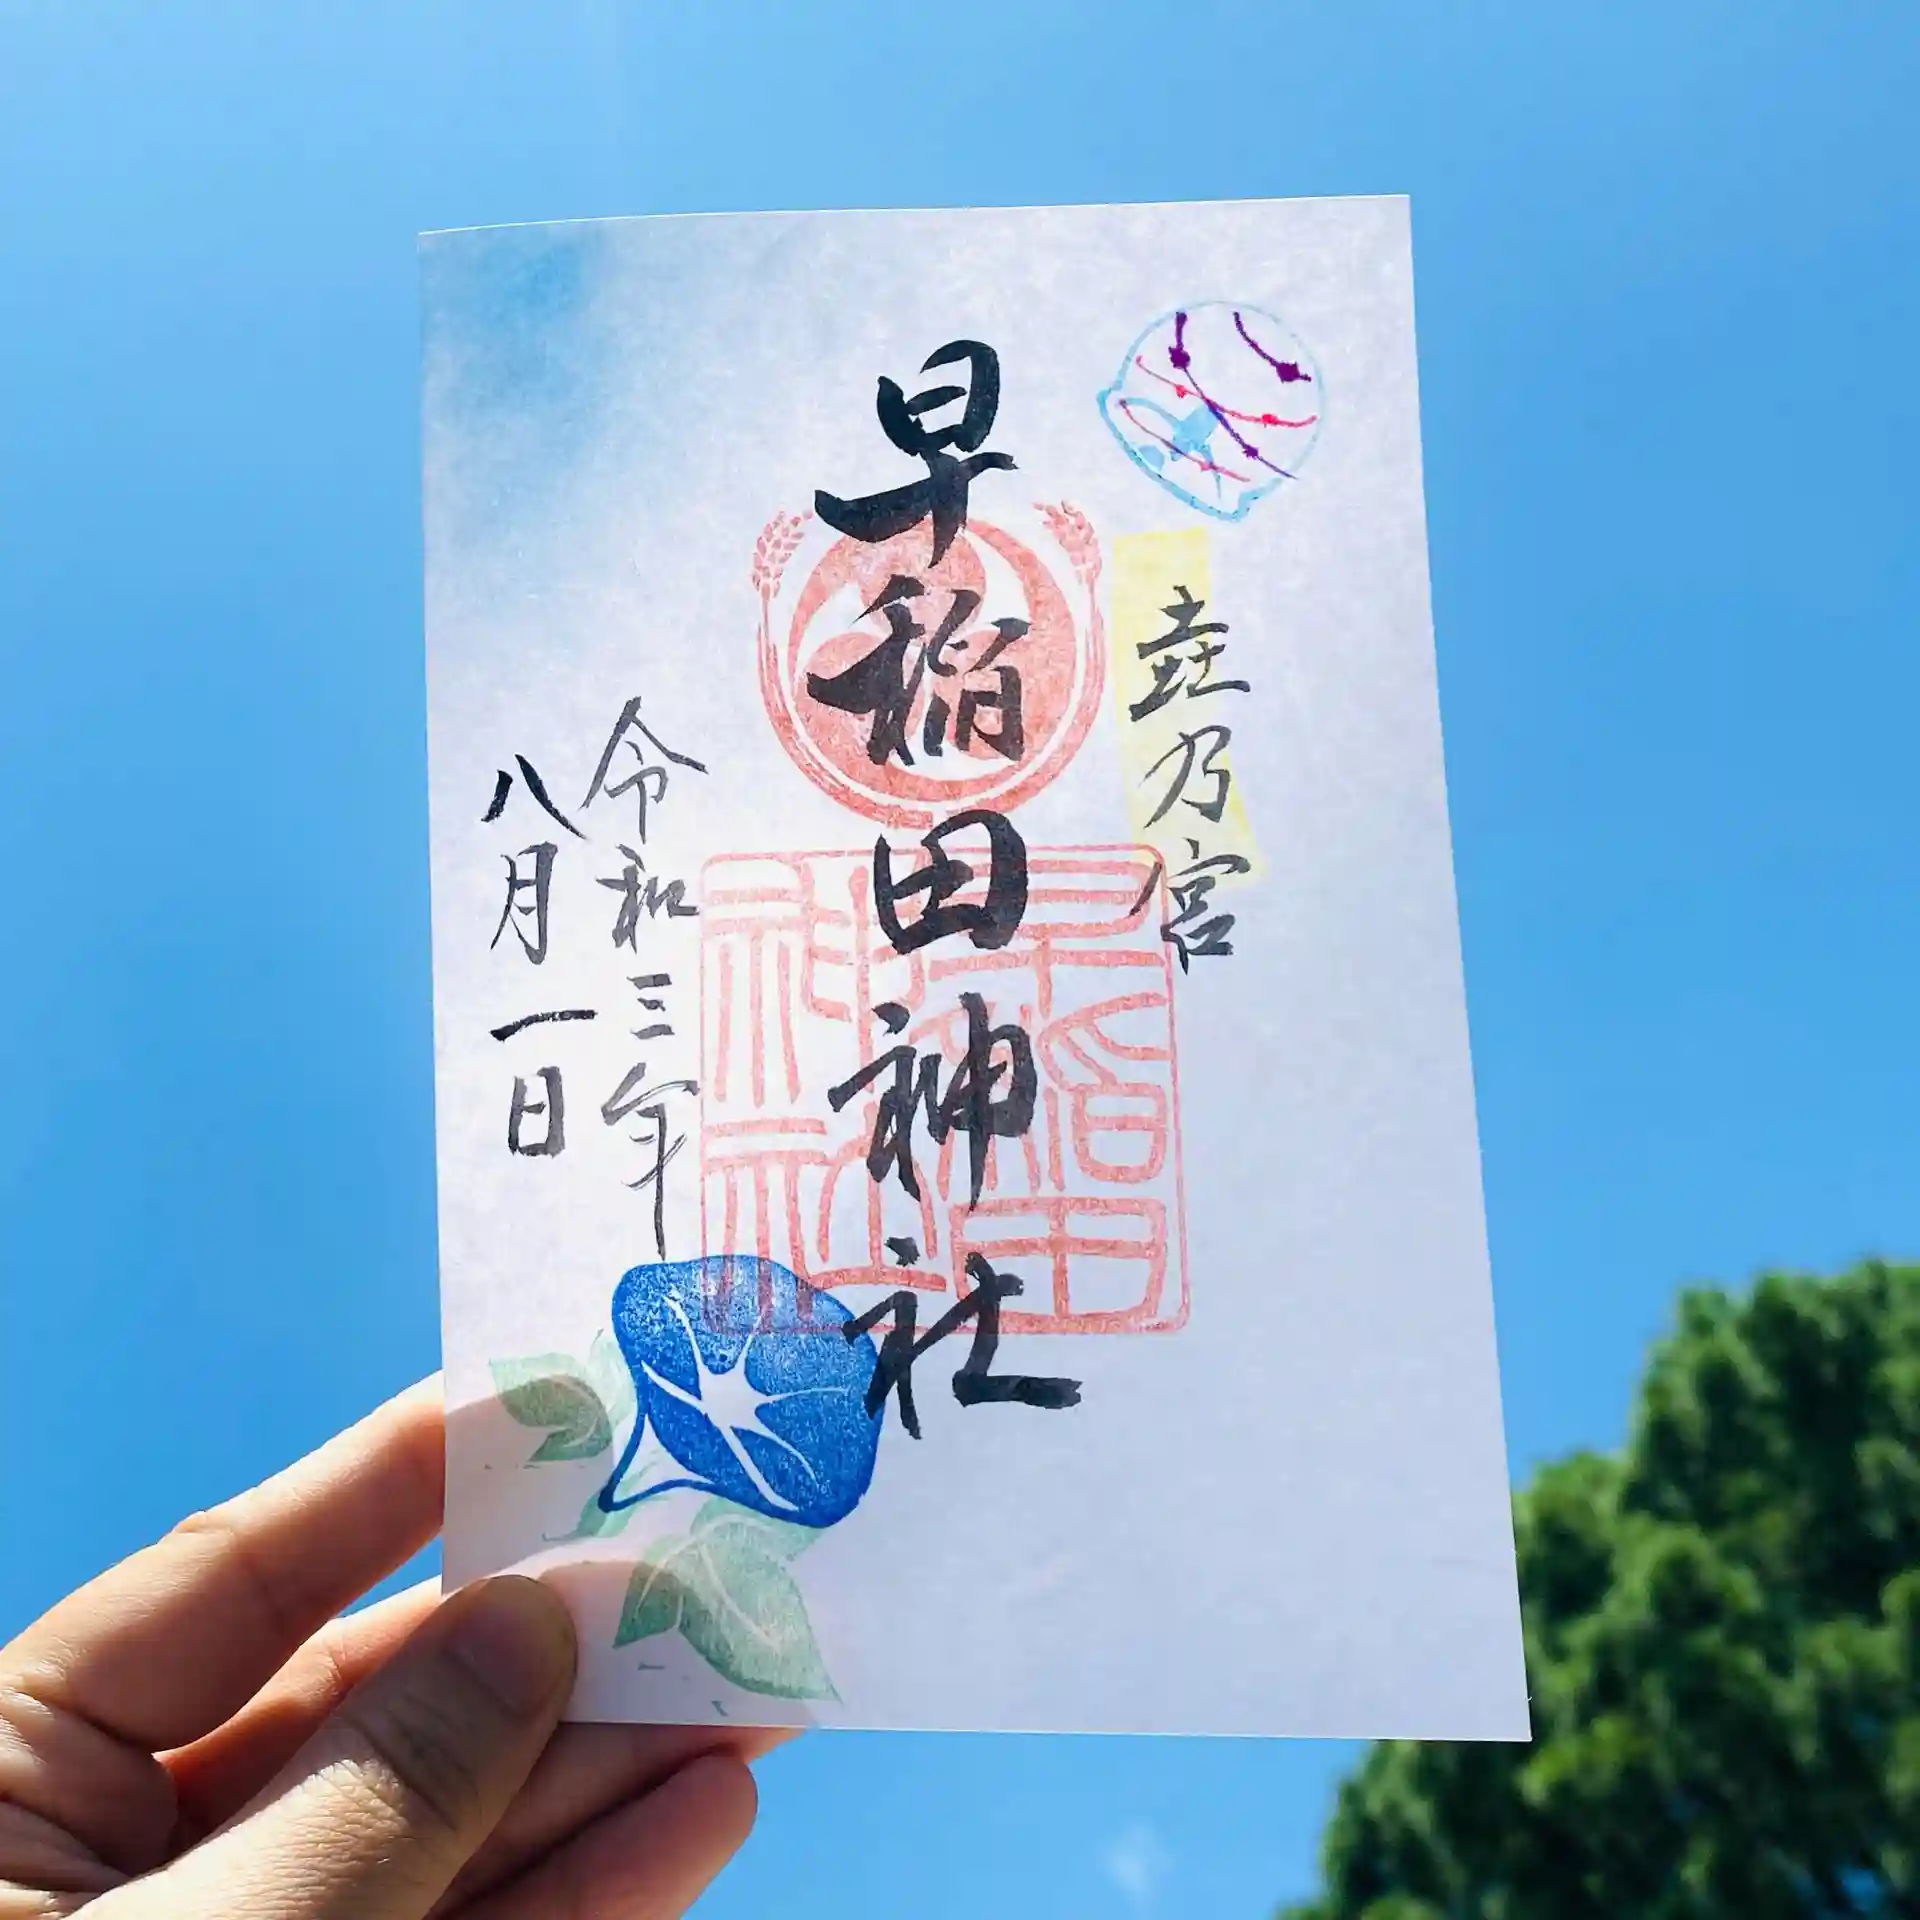 壵乃宮
早稲田神社
早稲田神社
令和三年
八月一日